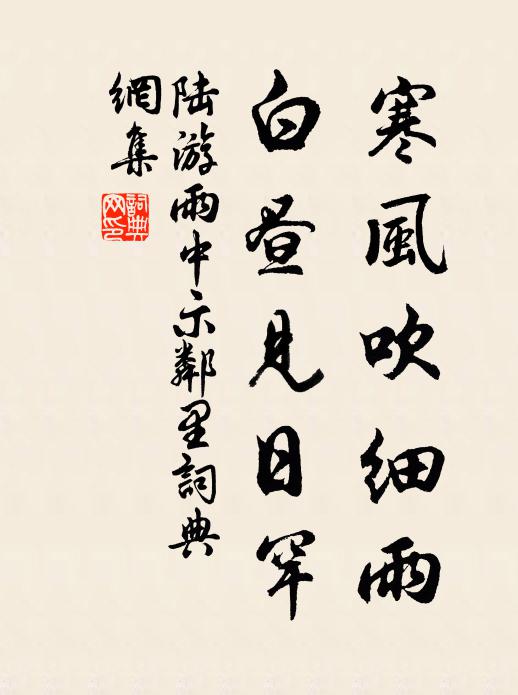 寒風吹細雨
白晝見日罕
陸游雨中示鄰里詞典
網集
詞典
网印